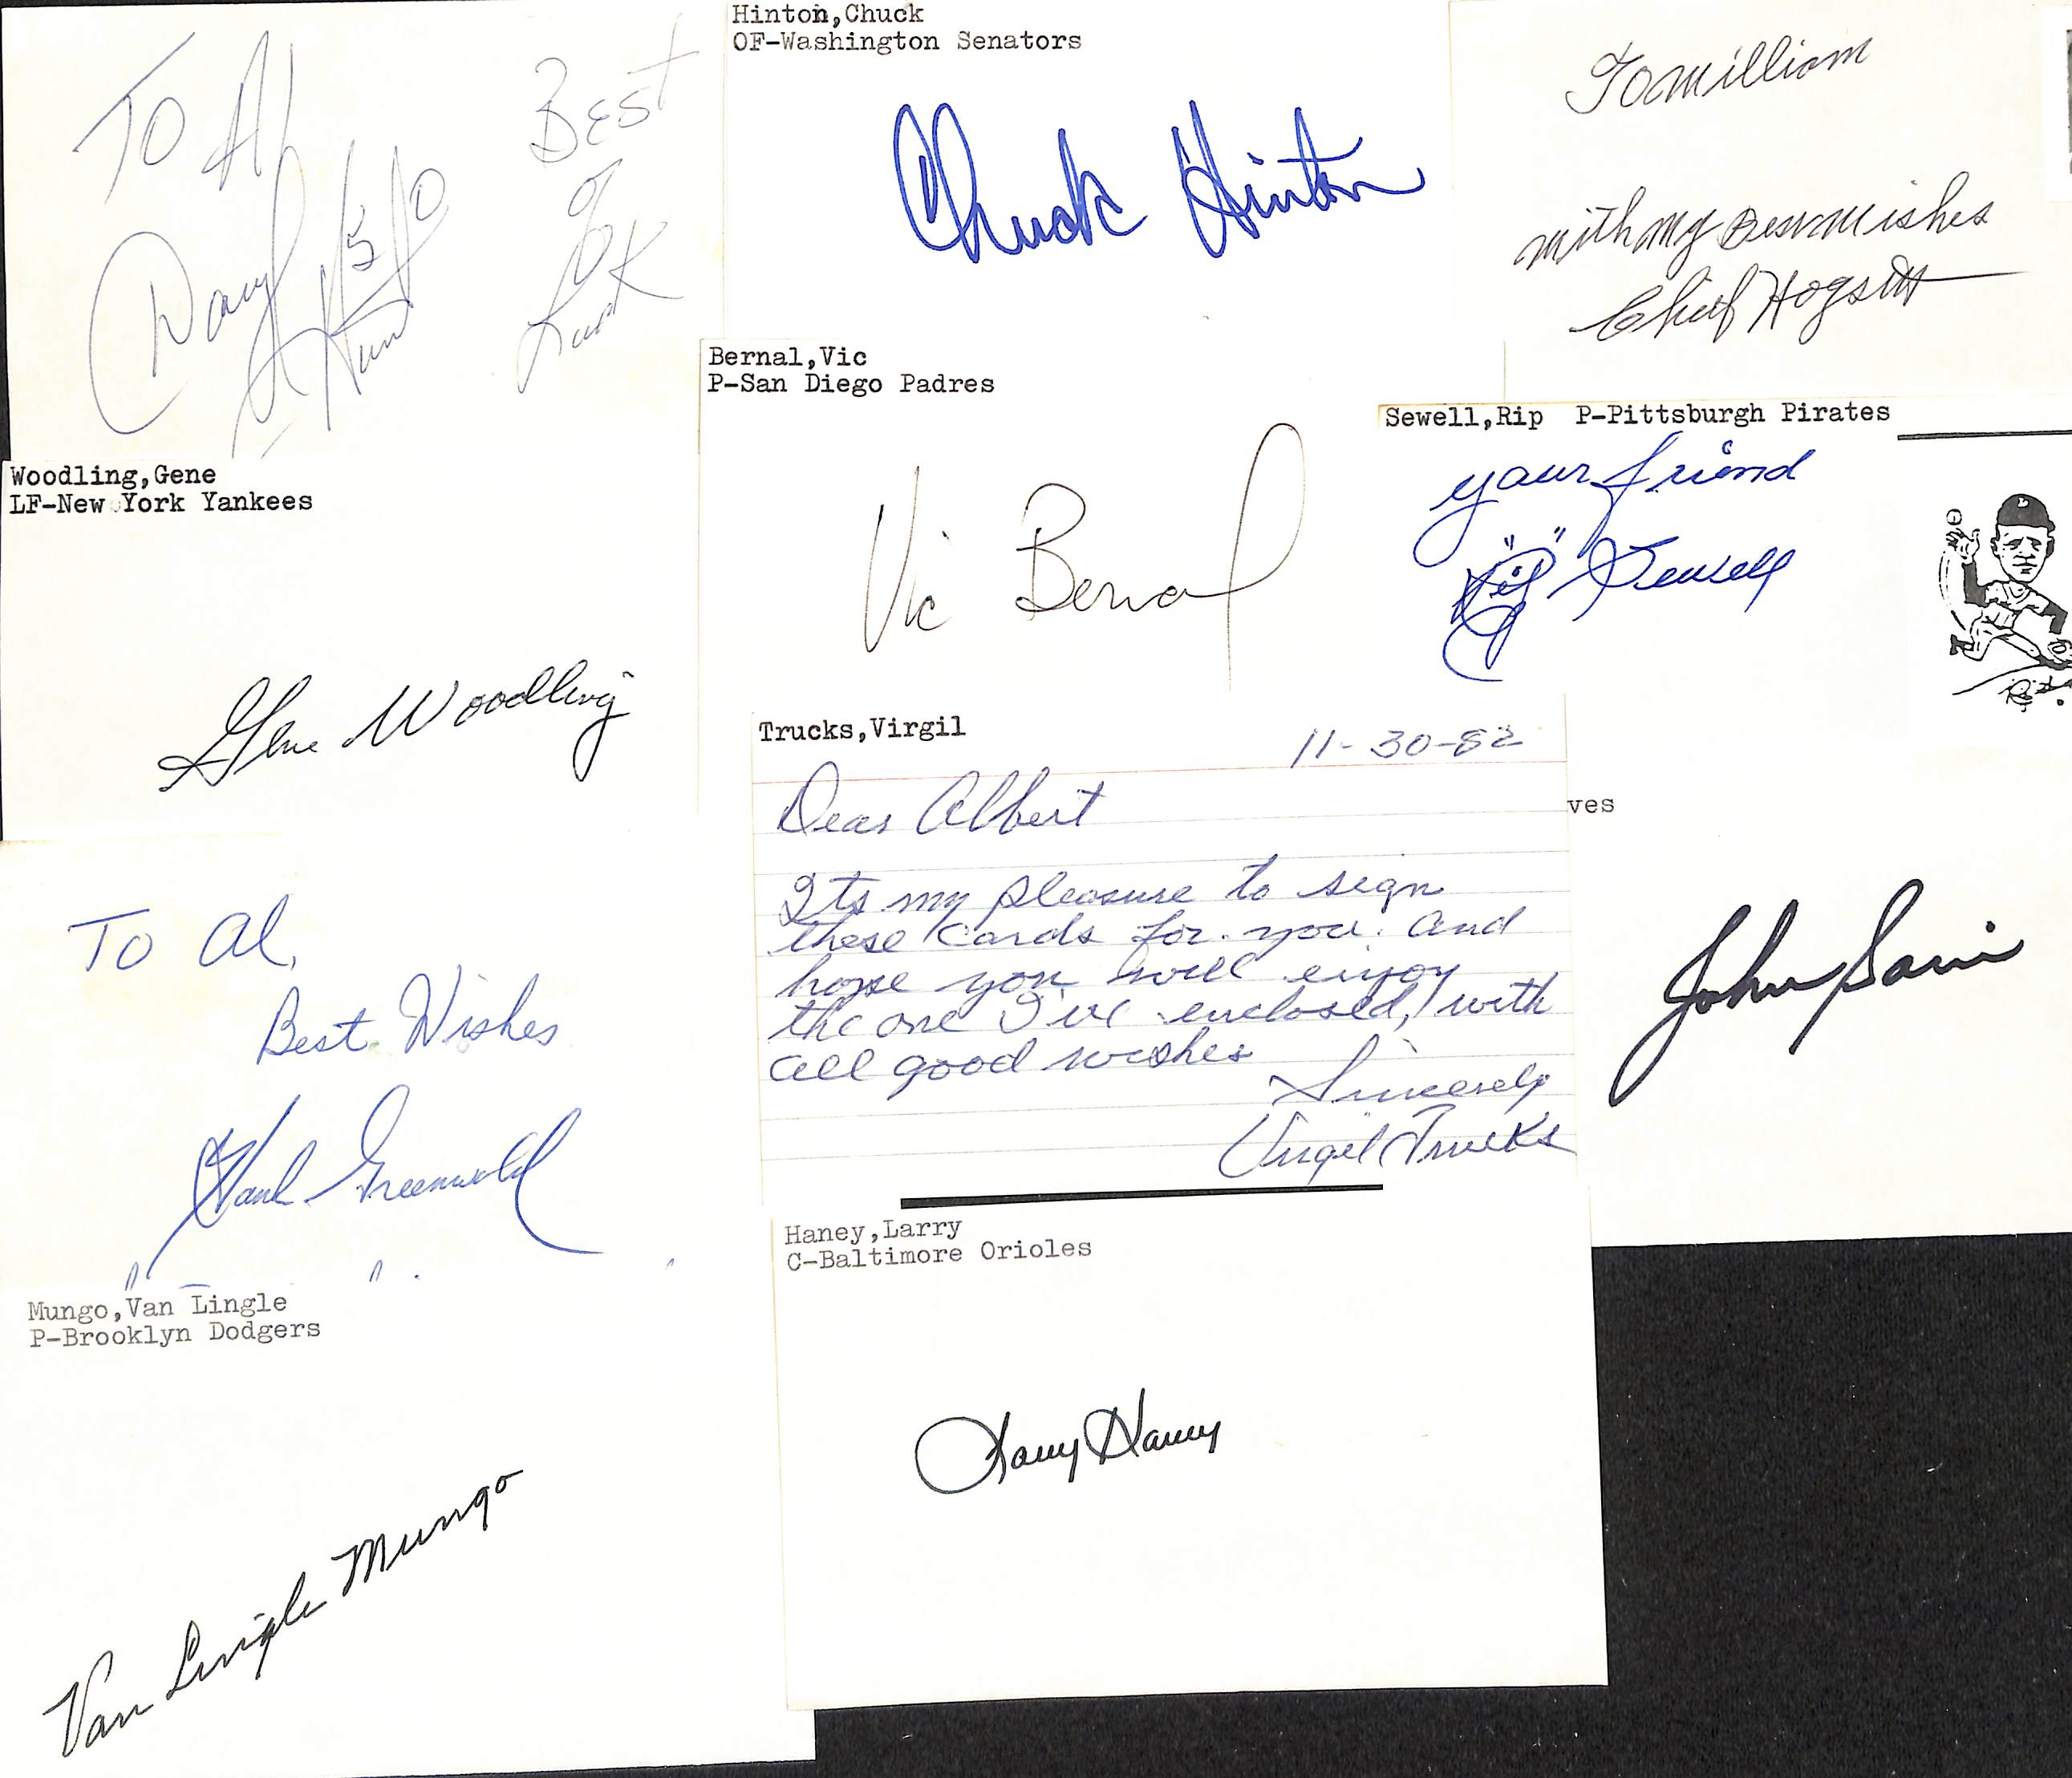 TO Al
Best
of
Luck
Hinton,Chuck
OF-Washington Senators
Chuck Hinton
To William
with my Best Wishes
Chief Hogsett
Woodling,Gene
LF-New York Yankees
Gene Woodling
Bernal,Vic
P-San Diego Padres
Vic Bernal
Sewell,Rip P-Pittsburgh Pirates
your friend
"Rip" Sewell
Trucks,Virgil
11-30-82
Dear Albert
Its my pleasure to sign
these cards for you. and
hope you will enjoy
the one I've enclosed, with
all good wishes
Sincerely
Virgil Trucks
ves
John Sain
TO Al,
Best Wishes
Hank Greenwald
Mungo,Van Lingle
P-Brooklyn Dodgers
Van Lingle Mungo
Haney,Larry
C-Baltimore Orioles
Larry Haney